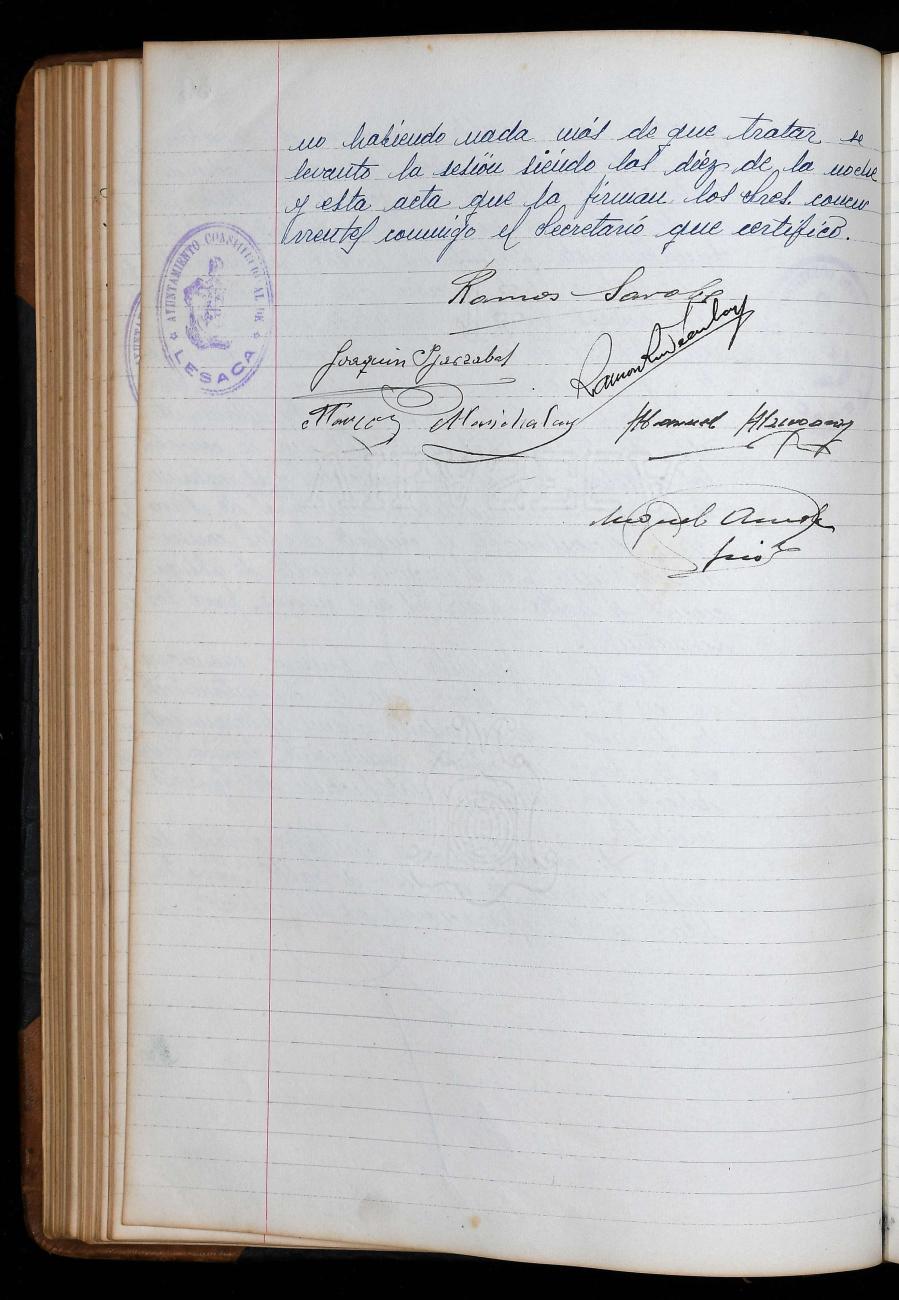 no habiendo nada más de que tratar se
levanto la sesión siendo las diéz de la noche
y esta acta que la firman los Sres. concu
rrentes conmigo el Secretario que certifico.
AYUNTAMIENTO CONSTITUCIONAL DE
LESACA
Ramos
Joaquin
Ramon
Manuel
Miguel